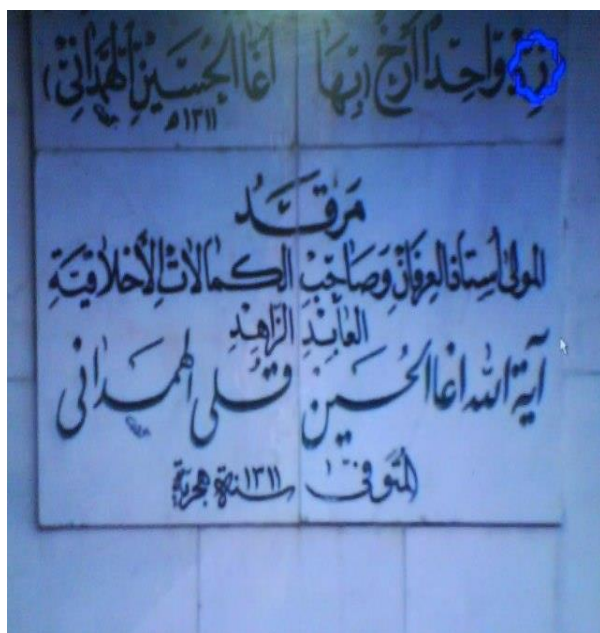 زِدْ وَاحِداً أَرِّخْ (بِهَا آغا الحُسَيْنِ الهَمَدَانِيّ)
١٣١١هـ
مَرْقَدُ
المولى أستاذ العرفان وَصَاحِبُ الكمالات الأخلاقيَّة
العَابِدِ الزَّاهِدِ
آية الله اغا الحُسين قُلي الهمداني
المتوفى سنة ١٣١١ هجرية